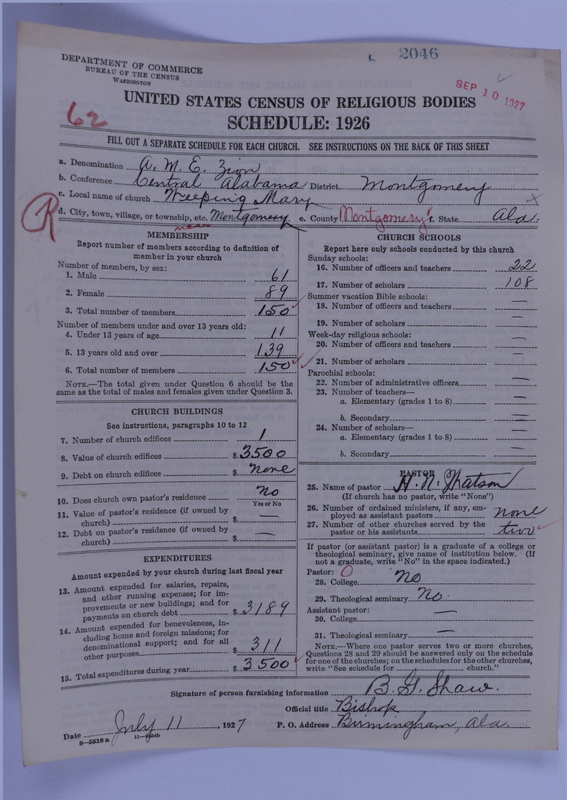 2046
DEPARTMENT OF COMMERCE
BUREAU OF THE CENSUS
WASHINGTON
SEP 10 1927
UNITED STATES CENSUS OF RELIGIOUS BODIES
62
SCHEDULE: 1926
FILL OUT A SEPARATE SCHEDULE FOR EACH CHURCH. SEE INSTRUCTIONS ON THE BACK OF THIS SHEET
a. Denomination A. M. E. Zion
b. Conference Central Alabama District Montgomery
c. Local name of church Weeping Mary
R
d. City, town, village, or township, etc. Montgomery e. County Montgomery f. State Ala.
MEMBERSHIP
Report number of members according to definition of
member in your church
Number of members, by sex:
1. Male 61
2. Female 89
3. Total number of members 150
Number of members under and over 13 years old:
4. Under 13 years of age 11
5. 13 years old and over 139
6. Total number of members 150
NOTE.—The total given under Question 6 should be
the same as the total of males and females given under Question 3.
CHURCH BUILDINGS
See instructions, paragraphs 10 to 12
7. Number of church edifices 1
8. Value of church edifices $ 3500
9. Debt on church edifices $ none
10. Does church own pastor's residence no
Yes or No
11. Value of pastor's residence (if owned by
church) $ —
12. Debt on pastor's residence (if owned by
church) $ —
EXPENDITURES
Amount expended by your church during last fiscal year
13. Amount expended for salaries, repairs,
and other running expenses; for im-
provements or new buildings; and for
payments on church debt $ 3189
14. Amount expended for benevolences, in-
cluding home and foreign missions; for
denominational support; and for all
other purposes $ 311
15. Total expenditures during year $ 3500
CHURCH SCHOOLS
Report here only schools conducted by this church
Sunday schools:
16. Number of officers and teachers 22
17. Number of scholars 108
Summer vacation Bible schools:
18. Number of officers and teachers —
19. Number of scholars —
Week-day religious schools:
20. Number of officers and teachers —
21. Number of scholars —
Parochial schools:
22. Number of administrative officers —
23. Number of teachers—
a. Elementary (grades 1 to 8) —
b. Secondary —
24. Number of scholars—
a. Elementary (grades 1 to 8) —
b. Secondary —
PASTOR
25. Name of pastor H. N. Watson
(If church has no pastor, write "None")
26. Number of ordained ministers, if any, em-
ployed as assistant pastors none
27. Number of other churches served by the
pastor or his assistants two
If pastor (or assistant pastor) is a graduate of a college or
theological seminary, give name of institution below. (If
not a graduate, write "No" in the space indicated.)
Pastor: 0
28. College no
29. Theological seminary no.
Assistant pastor:
30. College —
31. Theological seminary —
NOTE.—Where one pastor serves two or more churches,
Questions 28 and 29 should be answered only on the schedule
for one of the churches; on the schedules for the other churches,
write "See schedule for church."
Signature of person furnishing information B. G. Shaw.
Official title Bishop
Date July 11 1927 P. O. Address Birmingham, Ala.